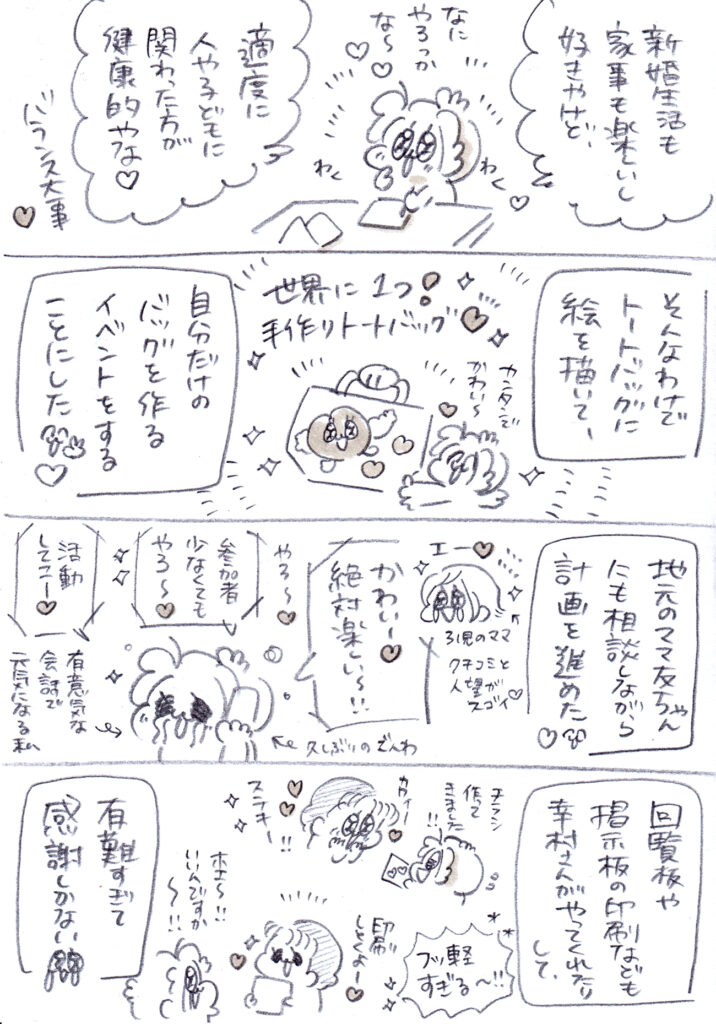 新婚生活も
家事も楽しいし
好きやけど、
なに
やろっか
な〜♡
わく
わく
適度に
人や子どもに
関わった方が
健康的やな♡
バランス大事
そんなわけで
トートバッグに
絵を描いて、
世界に1つ!
手作りトートバッグ
カンタンで
かわい〜
自分だけの
バッグを作る
イベントをする
ことにした
地元のママ友ちゃん
にも相談しながら
計画を進めた
エー
3児のママ
クチコミと
人望が
スゴイ
かわいー
絶対楽しい〜!!
やろ〜
参加者
少なくても
やろ〜
活動
してエー
有意気な
会話で
元気になる私
久しぶりのでんわ
回覧板や
掲示板の印刷なども
幸村さんがやってくれたり
して、
チラシ
作って
きました!!
カワイー
ステキー!!
フッ軽
すぎる〜!!
印刷
しとくよー
ホエ〜!!
いいんですか
〜!!
有難すぎて
感謝しかない